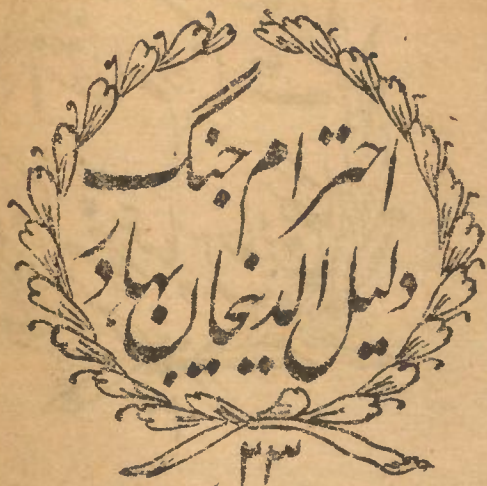 احترام جنگ
دلیل الدینخان بہادر
۲۳